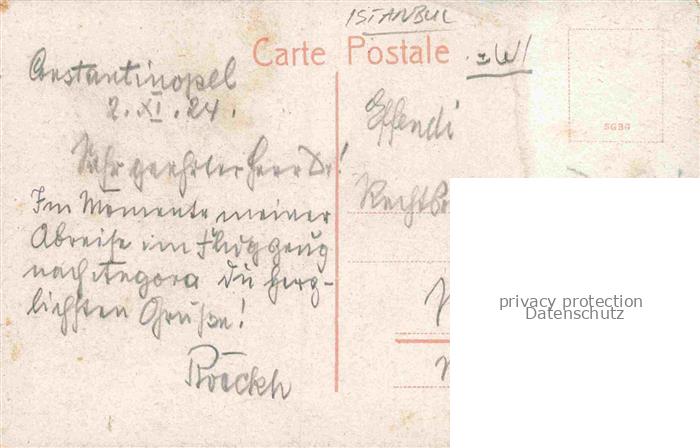 ISTANBUL
Carte Postale
Constantinopel
2. XI. 24.
Sehr geehrter Herr Dr!
Im Momente meiner
Abreise im Flugzeug
nach Angora die herz-
lichsten Grüße!
Effendi
SGBG
privacy protection
Datenschutz